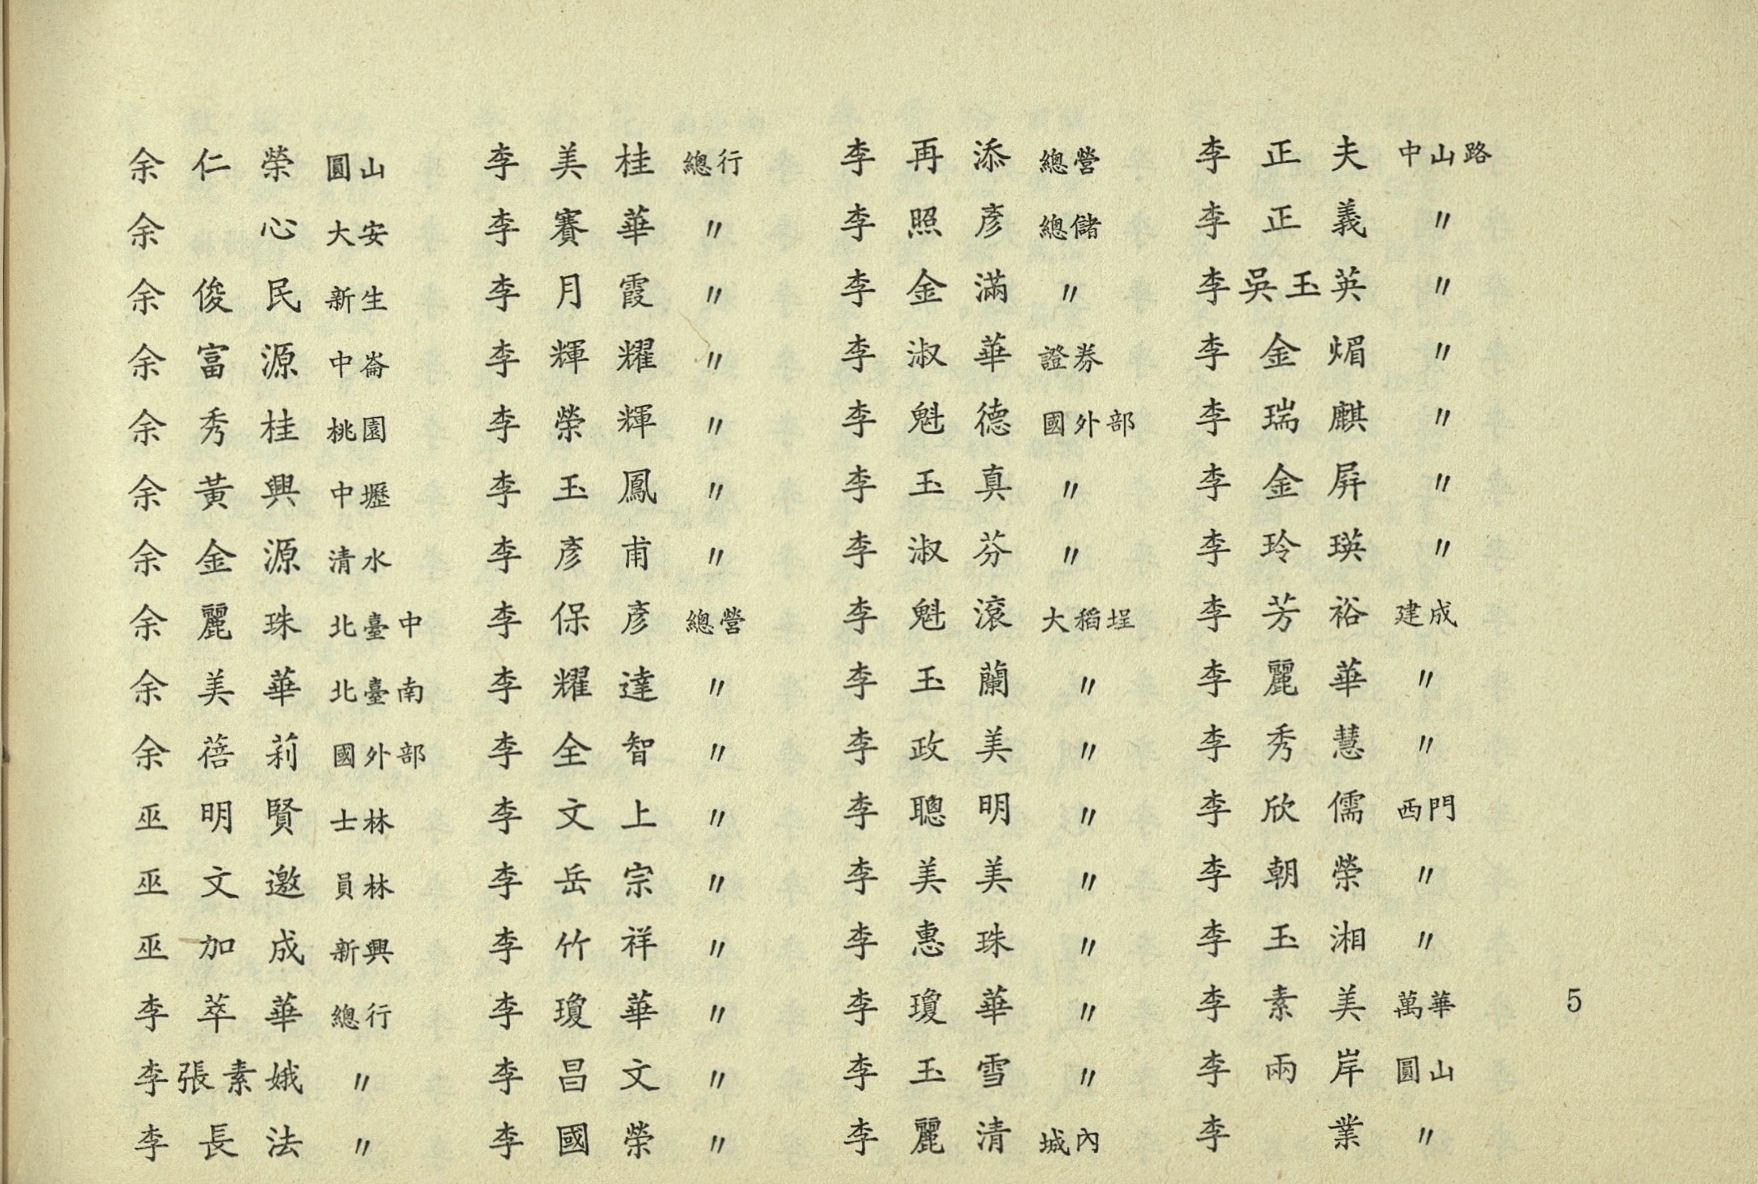 余仁榮 圓山
余心 大安
余俊民 新生
余富源 中崙
余秀桂 桃園
余黃興 中壢
余金源 清水
余麗珠 北臺中
余美華 北臺南
余蓓莉 國外部
巫明賢 士林
巫文邀 員林
巫加成 新興
李萃華 總行
李張素娥 〃
李長法 〃
李美桂 總行
李賽華 〃
李月霞 〃
李輝耀 〃
李榮輝 〃
李玉鳳 〃
李彥甫 〃
李保彥 總營
李耀達 〃
李全智 〃
李文上 〃
李岳宗 〃
李竹祥 〃
李瓊華 〃
李昌文 〃
李國榮 〃
李再添 總營
李照彥 總儲
李金滿 〃
李淑華 證券
李魁德 國外部
李玉真 〃
李淑芬 〃
李魁滾 大稻埕
李玉蘭 〃
李政美 〃
李聰明 〃
李美美 〃
李惠珠 〃
李瓊華 〃
李玉雪 〃
李麗清 城內
李正夫 中山路
李正義 〃
李吳玉英 〃
李金煝 〃
李瑞麒 〃
李金屏 〃
李玲瑛 〃
李芳裕 建成
李麗華 〃
李秀慧 〃
李欣儒 西門
李朝榮 〃
李玉湘 〃
李素美 萬華
李兩岸 圓山
李業 〃
5